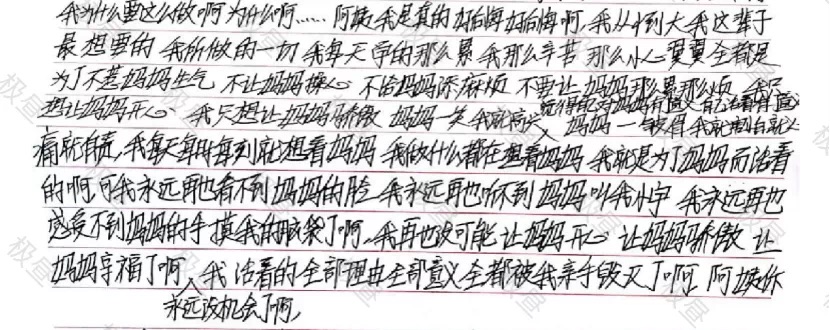 我为什么要这么做啊为什么啊……阿姨我是真的好后悔好后悔啊我从小到大我这辈子
最想要的我所做的一切我每天学的那么累我那么辛苦那么小心翼翼全都是
为了不惹妈妈生气 不让妈妈操心 不给妈妈添麻烦 不要让妈妈那么累那么烦 我只
想让妈妈开心 我只想让妈妈骄傲 妈妈一笑我就高兴 觉得自己对妈妈有意义 自己活着有意义 妈妈一皱眉我就
痛就自责,我每天每时每刻就想着妈妈 我做什么都在想着妈妈 我就是为了妈妈而活着
的啊可我永远再也看不到妈妈的脸 我永远再也听不到妈妈叫我小宇 我永远再也
感受不到妈妈的手摸我的脑袋了啊,我再也没可能让妈妈开心 让妈妈骄傲 让
妈妈享福了啊,我活着的全部理由全部意义全都被我亲手毁灭了啊 阿姨你
永远没机会了啊,
极昼